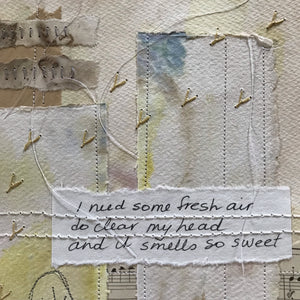 I need some fresh air
do clear my head
and it smells so sweet